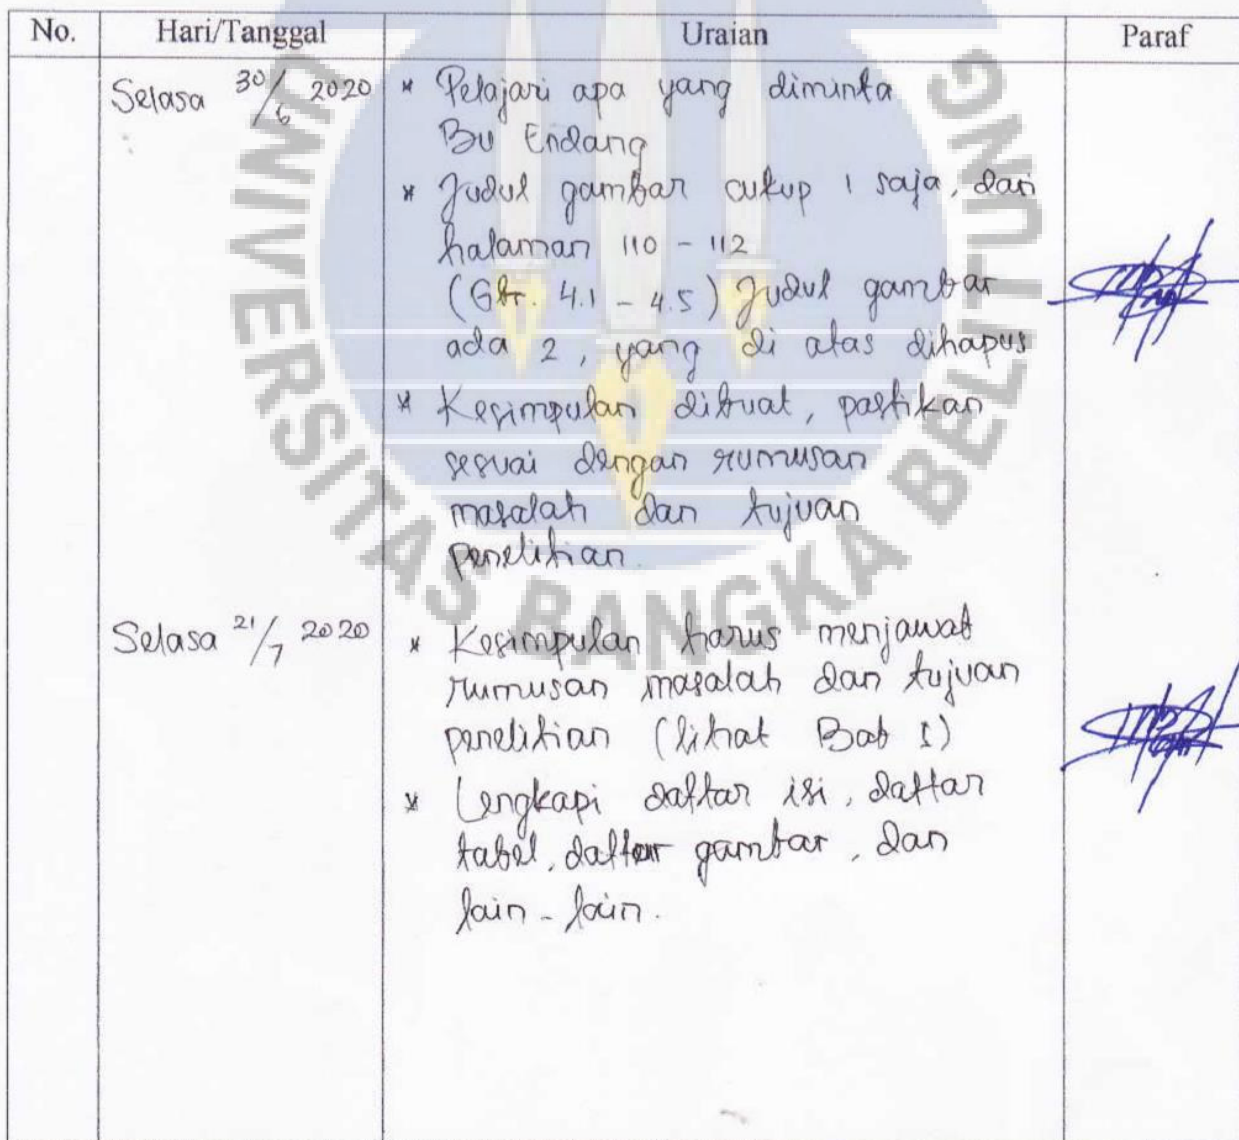 No. Hari/Tanggal Uraian Paraf
Selasa 30/6 2020 * Pelajari apa yang diminta
Bu Endang
* Judul gambar cukup 1 saja, dari
halaman 110 - 112
(Gbr. 4.1 - 4.5) Judul gambar
ada 2, yang di atas dihapus
* Kesimpulan dibuat, pastikan
sesuai dengan rumusan
masalah dan tujuan
penelitian.
Selasa 21/7 2020 * Kesimpulan harus menjawab
rumusan masalah dan tujuan
penelitian (lihat Bab I)
* Lengkapi daftar isi, daftar
tabel, daftar gambar, dan
lain-lain.
UNIVERSITAS BANGKA BELITUNG